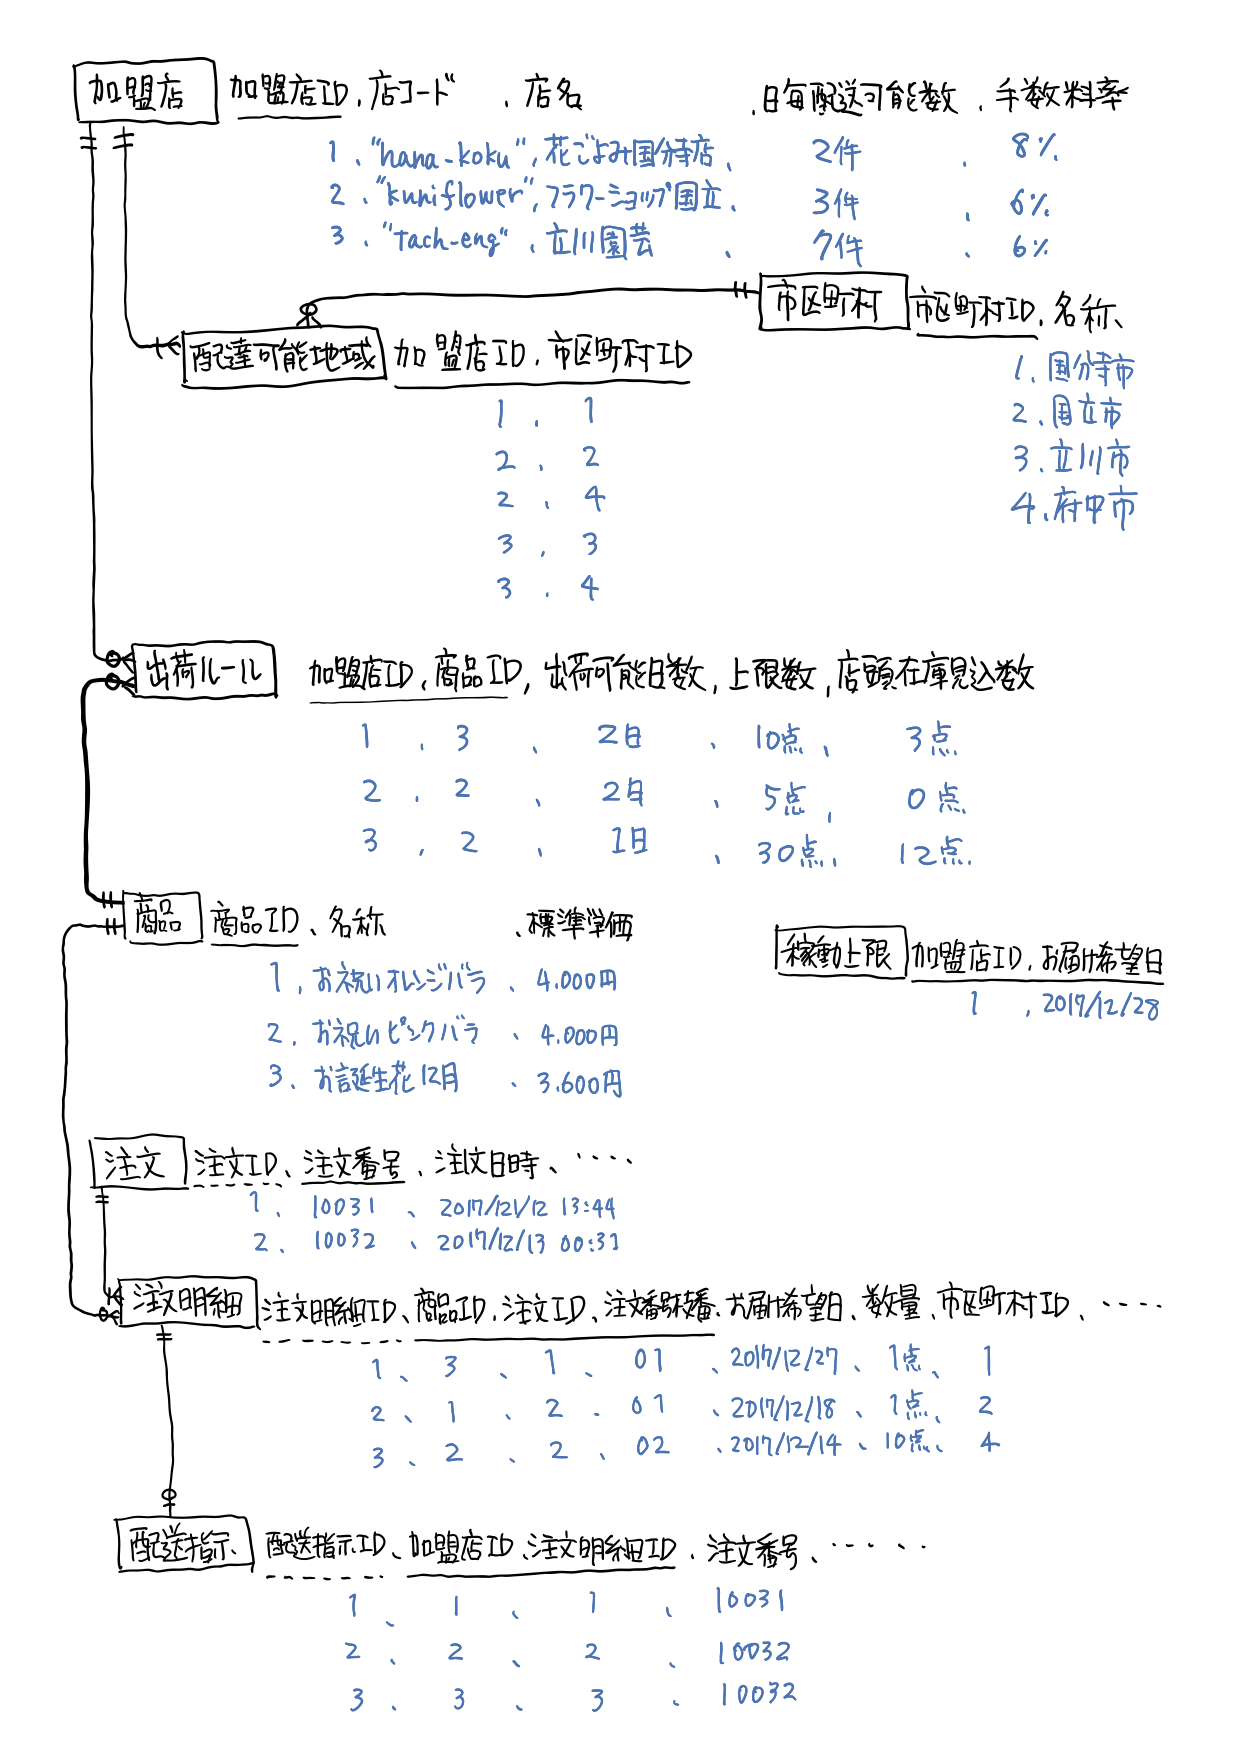 加盟店 加盟店ID、店コード 、店名 、日毎配送可能数 、手数料率
1 、"hana-koku"、花ごよみ国分寺店、 2件 、 8%
2 、"kuniflower"、フラワーショップ国立、 3件 、 6%
3 、"tach-eng" 、立川園芸 、 7件 、 6%
市区町村 市区町村ID、名称、
配達可能地域 加盟店ID、市区町村ID
1、国分寺市
1 、 1
2、国立市
2 、 2
3、立川市
2 、 4
4、府中市
3 、 3
3 、 4
出荷ルール 加盟店ID、商品ID、出荷可能日数、上限数、店頭在庫見込数
1 、 3 、 2日 、 10点、 3点
2 、 2 、 2日 、 5点、 0点
3 、 2 、 1日 、 30点、 12点
商品 商品ID、名称 、標準単価
稼動上限 加盟店ID、お届け希望日
1、お祝いオレンジバラ 、4.000円
1 、2017/12/28
2、お祝いピンクバラ 、4.000円
3、お誕生花12月 、3.600円
注文 注文ID、注文番号、注文日時、・・・・
1、 10031 、 2017/12/12 13:44
2、 10032 、 2017/12/13 00:31
注文明細 注文明細ID、商品ID、注文ID、注文番号枝番、お届け希望日、数量、市区町村ID、・・・・
1 、 3 、 1 、 01 、2017/12/27 、1点、 1
2 、 1 、 2 、 01 、2017/12/18 、1点、 2
3 、 2 、 2 、 02 、2017/12/14 、10点、 4
配送指示 配送指示ID、加盟店ID、注文明細ID、注文番号、・・・・
1 、 1 、 1 、 10031
2 、 2 、 2 、 10032
3 、 3 、 3 、 10032